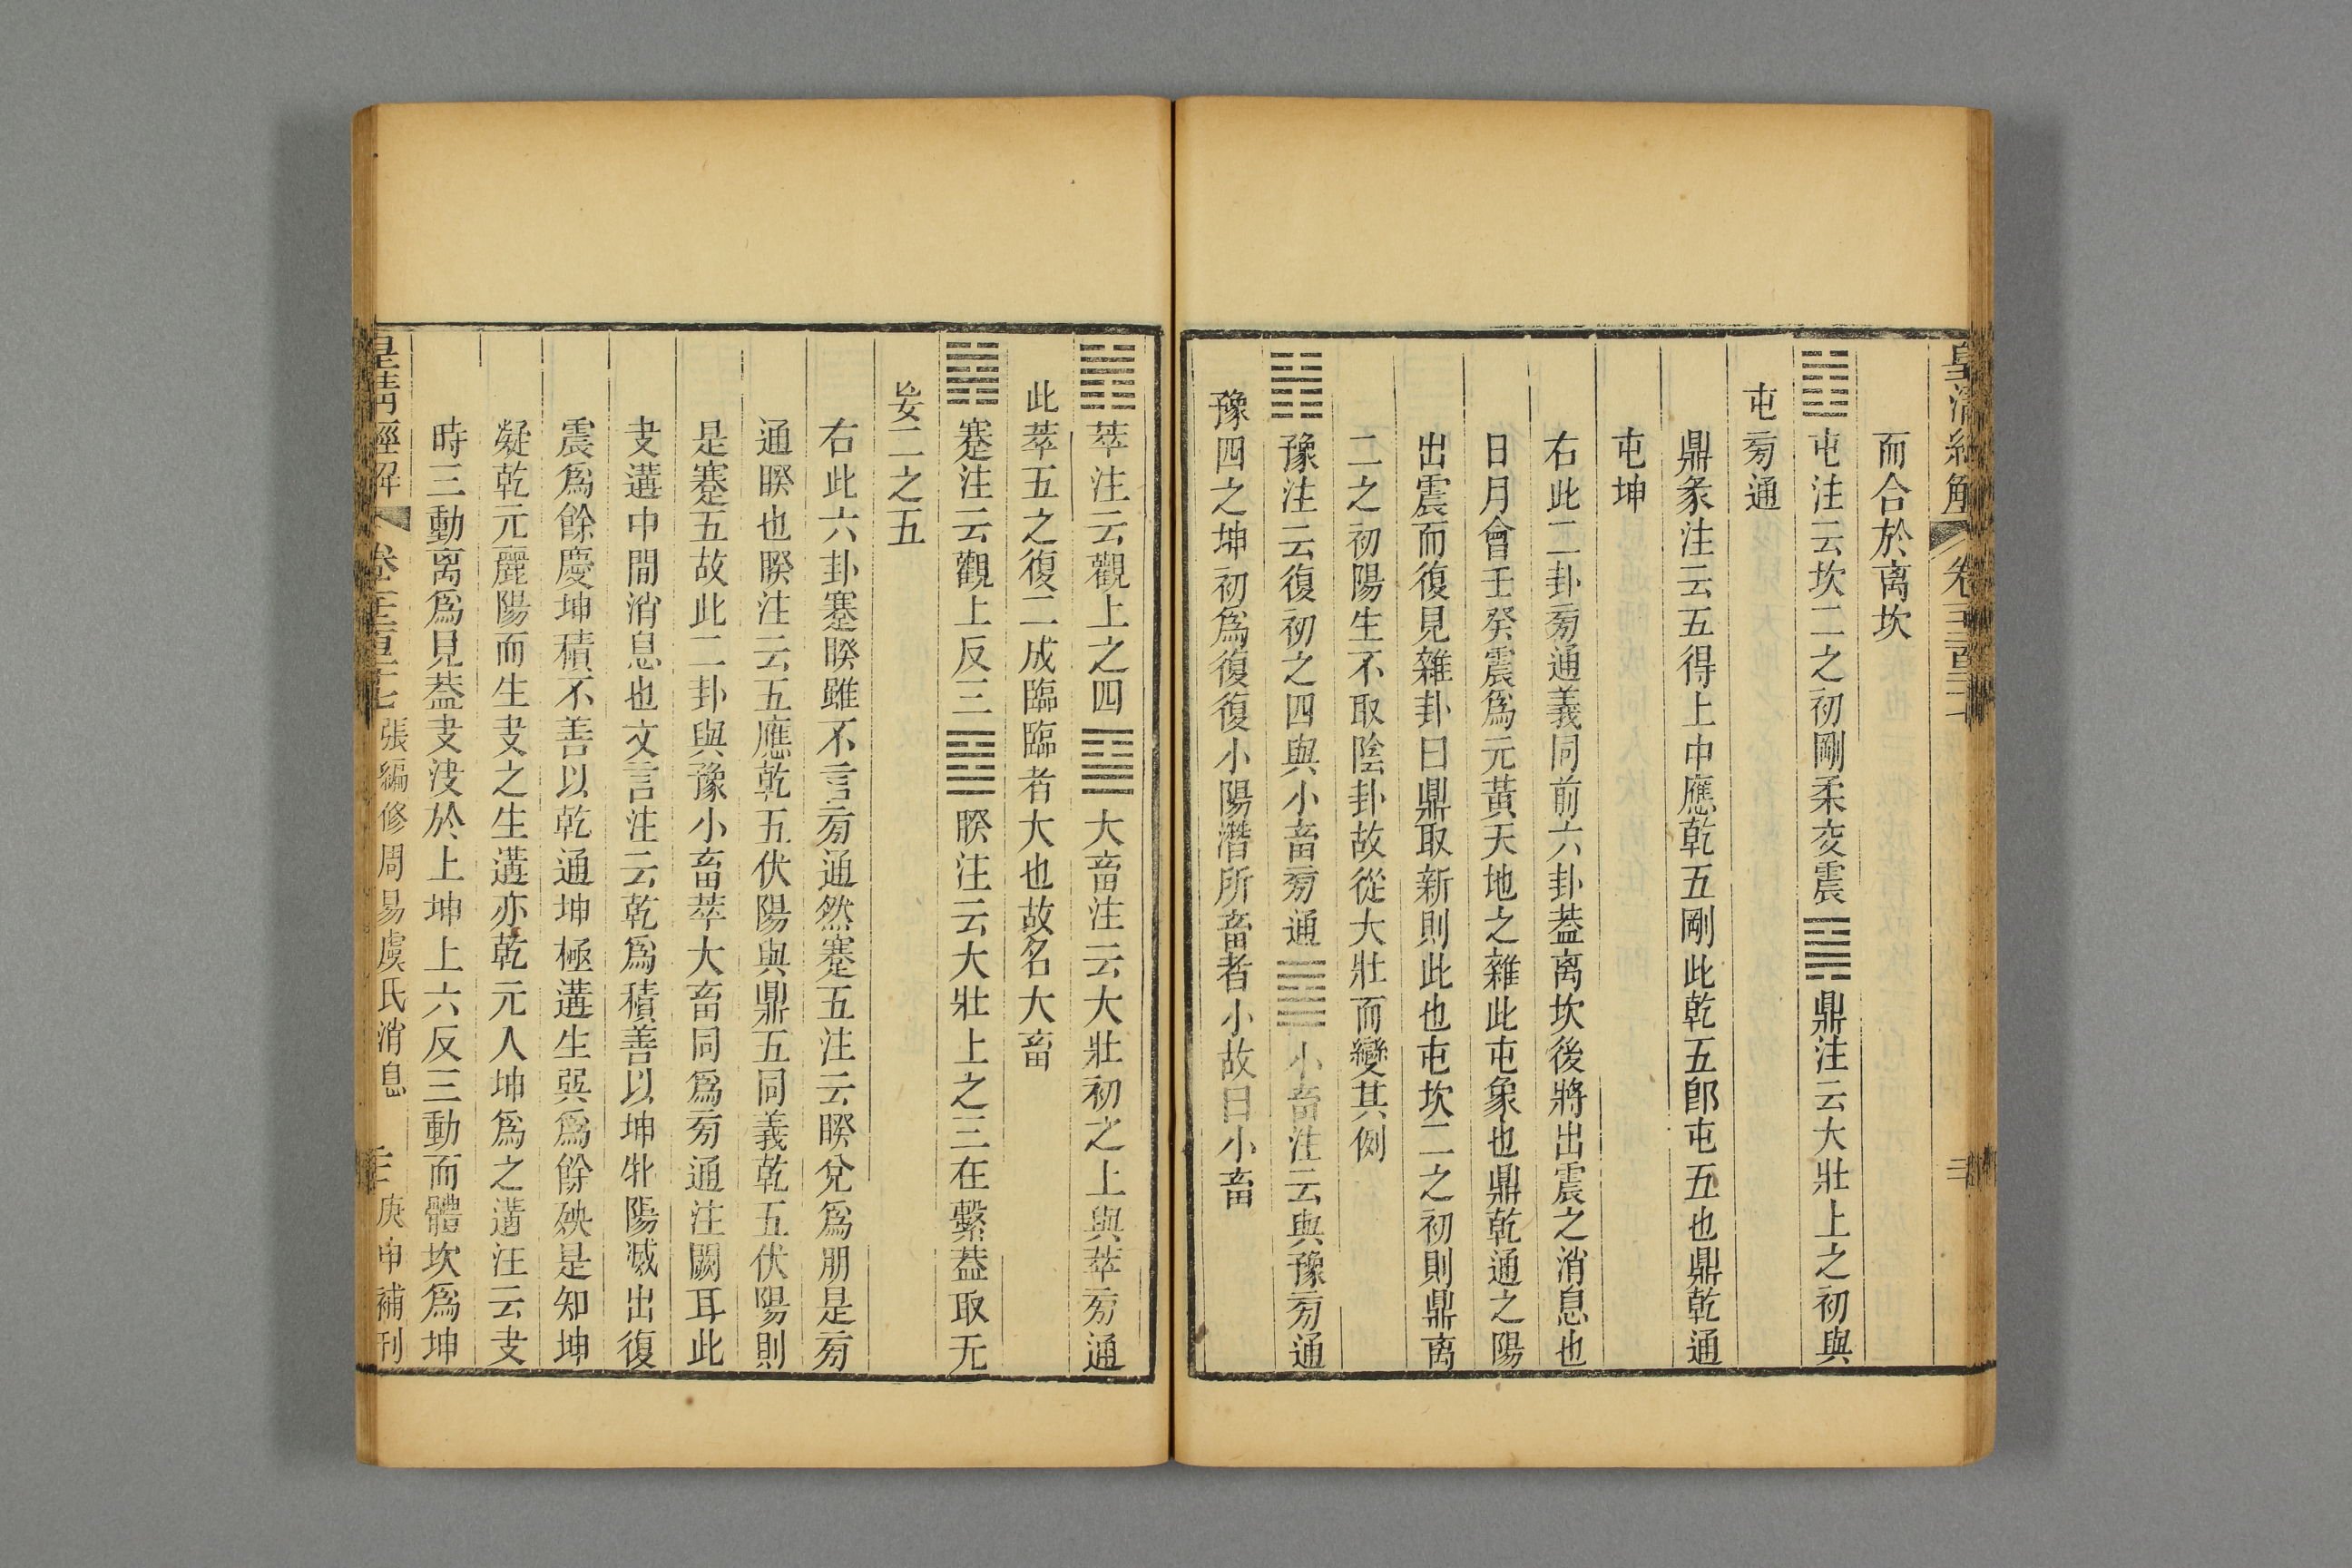 皇清經解 卷
而合於离坎
䷂屯注云坎二之初剛柔交震䷱鼎注云大壯上之初與
屯旁通
鼎彖注云五得上中應乾五剛此乾五卽屯五也鼎乾通
屯坤
右此二卦旁通義同前六卦葢离坎後將出震之消息也
日月會壬癸震爲元黃天地之雜此屯象也鼎乾通之陽
出震而復見雜卦曰鼎取新則此也屯坎二之初則鼎离
二之初陽生不取陰卦故從大壯而變其例
䷏豫注云復初之四與小畜旁通䷈小畜注云與豫旁通
豫四之坤初爲復復小陽潛所畜者小故曰小畜
䷬萃注云觀上之四䷙大畜注云大壯初之上與萃旁通
此萃五之復二成臨臨者大也故名大畜
䷦蹇注云觀上反三䷥睽注云大壯上之三在繫葢取无
妄二之五
右此六卦蹇睽雖不言旁通然蹇五注云睽兌爲朋是旁
通睽也睽注云五應乾五伏陽與鼎五同義乾五伏陽則
是蹇五故此二卦與豫小畜萃大畜同爲旁通注闕耳此
㕛遘中間消息也文言注云乾爲積善以坤牝陽滅出復
震爲餘慶坤積不善以乾通坤極遘生巽爲餘殃是知坤
凝乾元麗陽而生㕛之生遘亦乾元人坤爲之遘注云㕛
時三動离爲見葢㕛没於上坤上六反三動而體坎爲坤
皇清經解 卷 張編修周易虞氏消息 庚申補刊